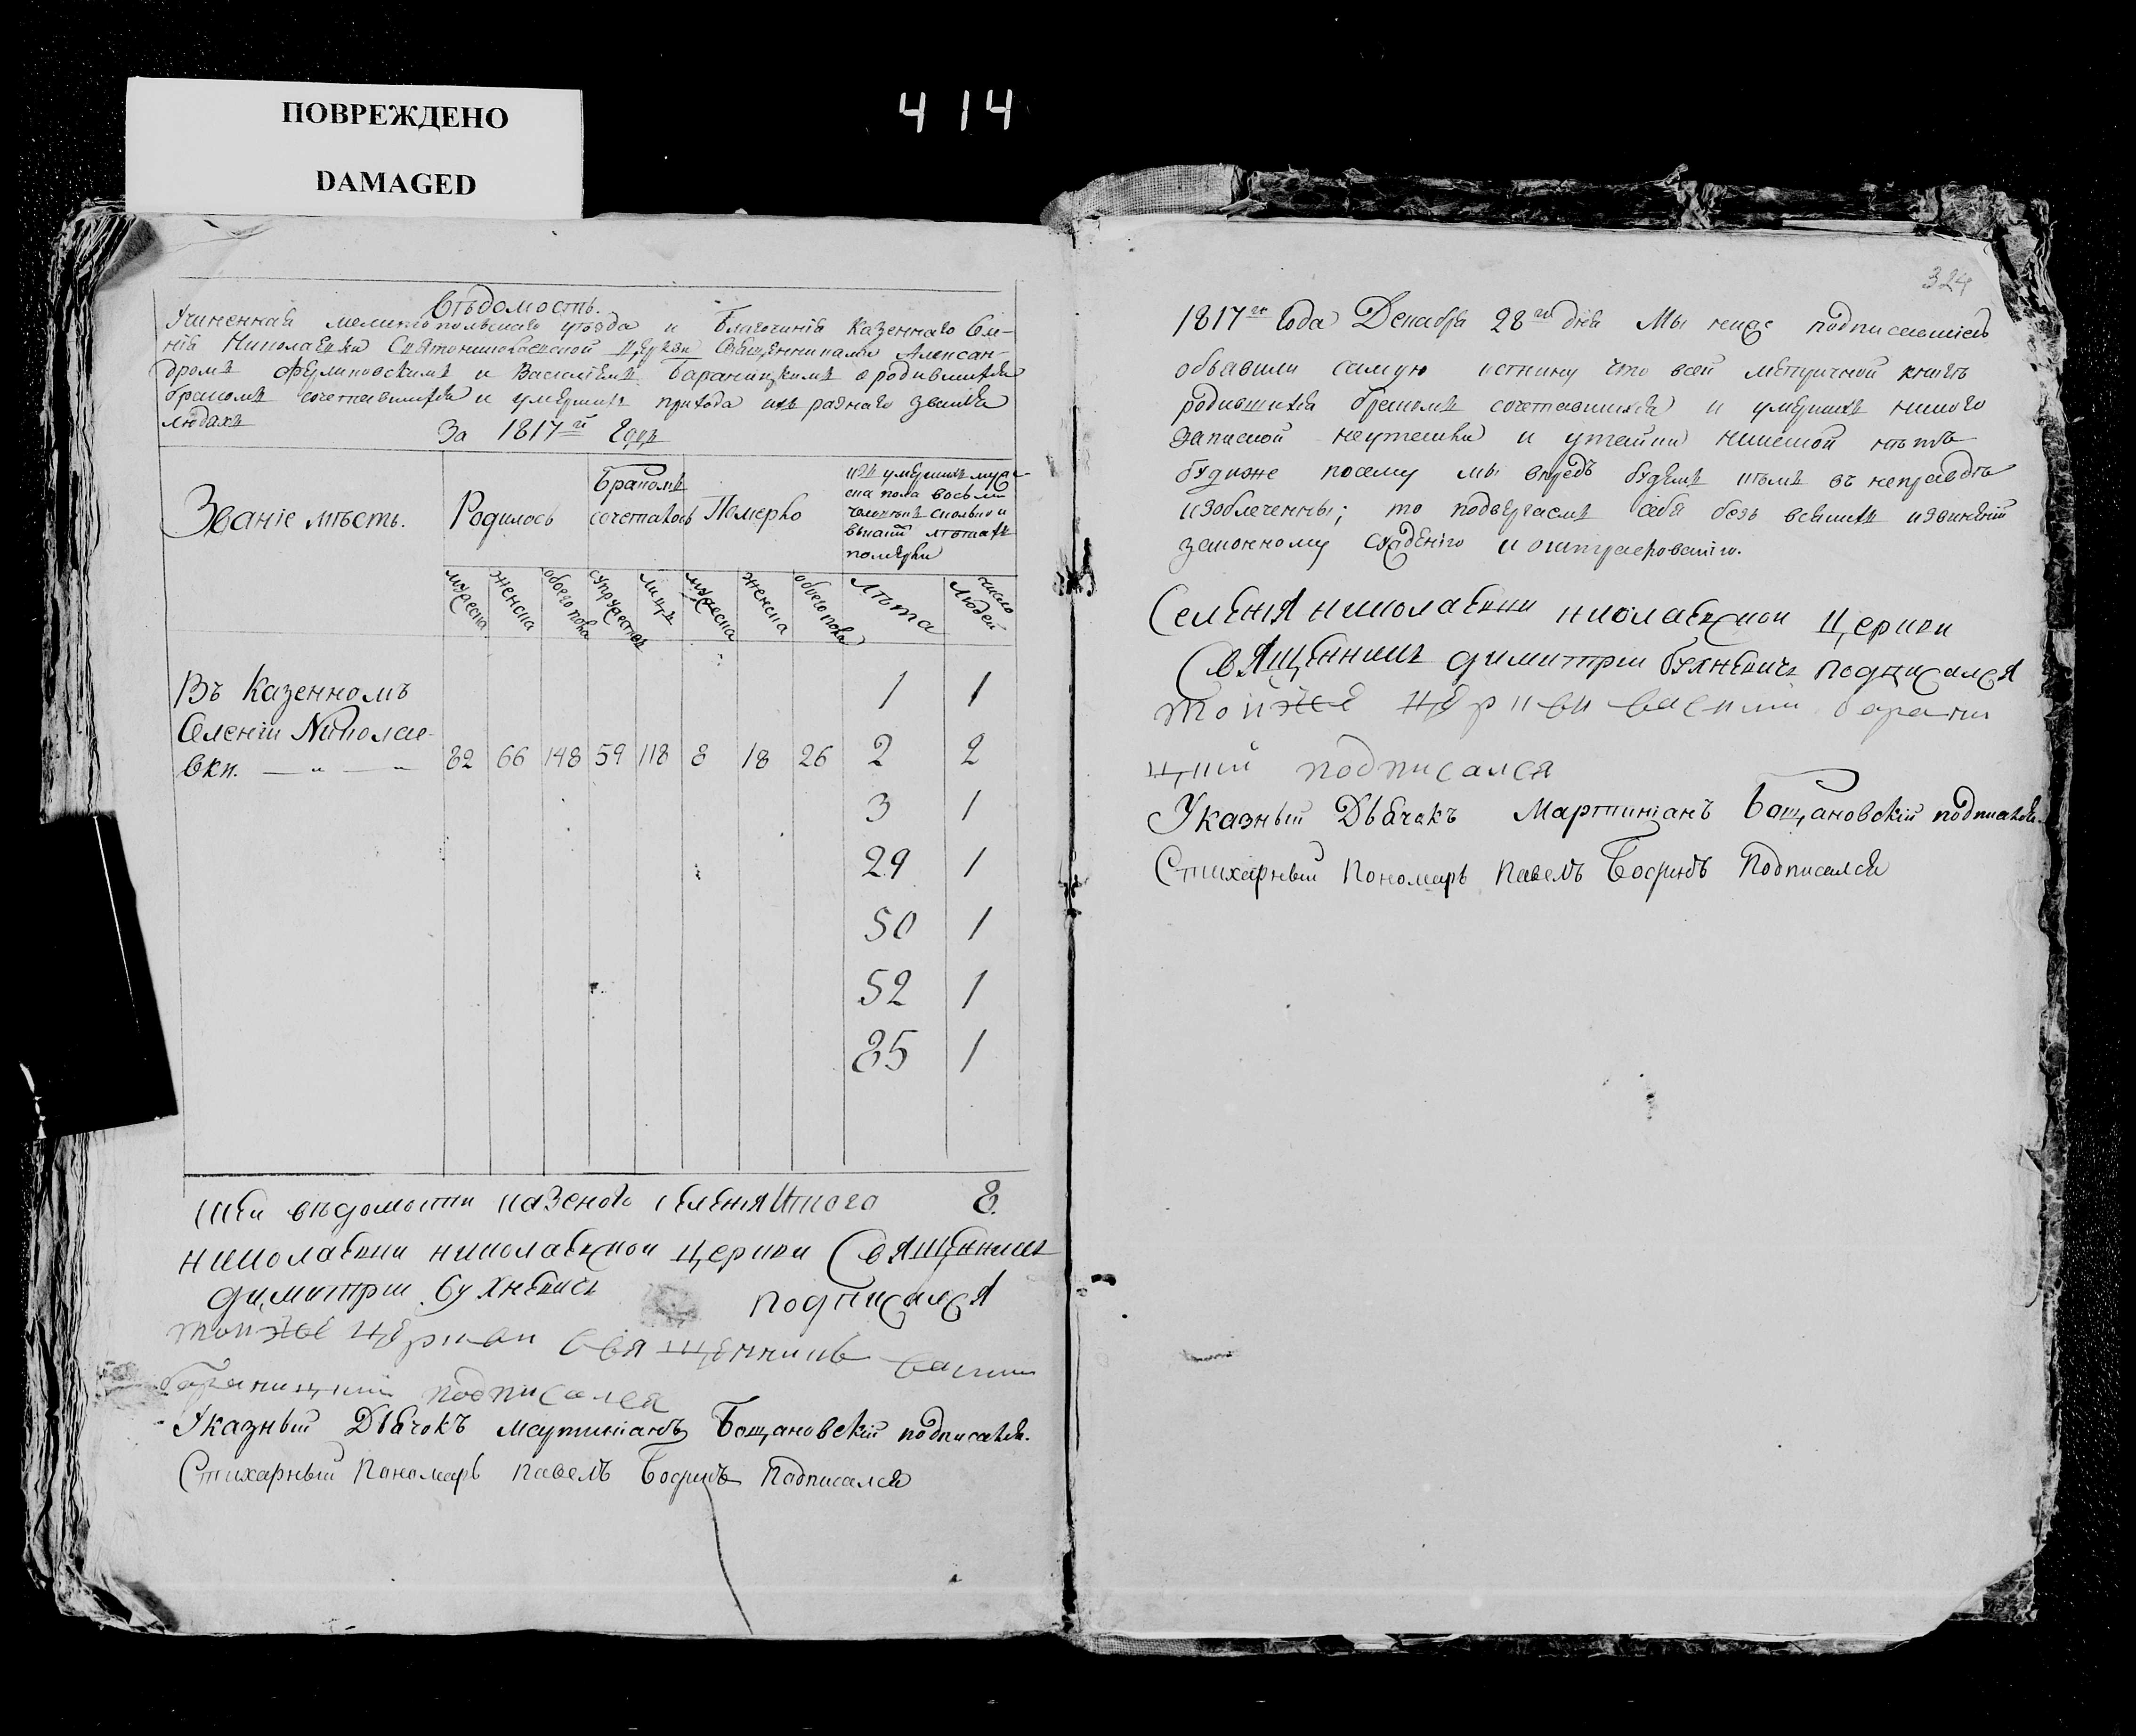 ПОВРЕЖДЕНО
DAMAGED
414
Вѣдомость.
Учиненная мелитопольскаго уѣзда и Благочинія казеннаго Селе-
нія Николаевки Святониколаевской церкви Священниками Алексан-
дромъ и Василіемъ Бараницкимъ о родившихся
бракомъ сочетавшихся и умершихъ прихода ихъ разнаго званія
людахъ
За 1817й Годъ
Званіе мѣстъ.
Родилось
Бракомъ
сочеталось
Померло
изъ умершихъ муже-
ска пола восьми
человѣкъ сколько и
въ какій лѣтахъ
померли
мужеска
женска
обоего пола
супружествъ
лицъ
мужеска
женска
обоего пола
Лѣта
число
Людей
Въ Казенномъ
Селеніи Николае-
вки. — „ — „
82 66 148 59 118 8 18 26
1 1
2 2
3 1
29 1
50 1
52 1
85 1
Сей вѣдомости казеного селенія Итого 8.
николаевки николаевской церкви Священникъ
димитрии подписался
тойже церкви священникъ василий
бараницкий подписался
Указный Дьячокъ Мартиніанъ Бощановскій подписался.
Стихарный Пономарь Павелъ подписался
324
1817го Года Декабря 28го дня Мы ниже подписавшіесь
объявили самую истинну что всей метричной книгѣ
родившихся бракомъ сочетавшихся и умершихъ никого
запиской неутешки и утайки никакой нѣтъ
будиже посему мы впредь будемъ въ неправдѣ
изобличенны; то подвергаемъ себя безъ всякихъ извиненій
законному сужденію и оштрафованію.
Селенія николаевки николаевской церкви
Священникъ димитрии подписался
тойже церкви василий барани
цкий подписался
Указный Дьячокъ Мартиніанъ Бощановскій подписался.
Стихарный Пономарь Павелъ Подписался